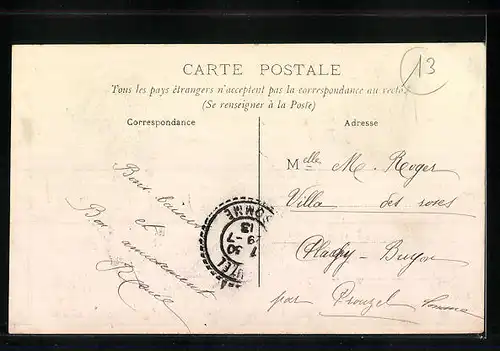 CARTE POSTALE
13
Tous les pays étrangers n'acceptent pas la correspondance au recto
(Se renseigner à la Poste)
Correspondance
Adresse
Bons baisers
et
Bon amusement
Melle M. Roger
Villa des roses
Plachy-Buyon
par Prouzel Somme
SOMME
13
29 -7